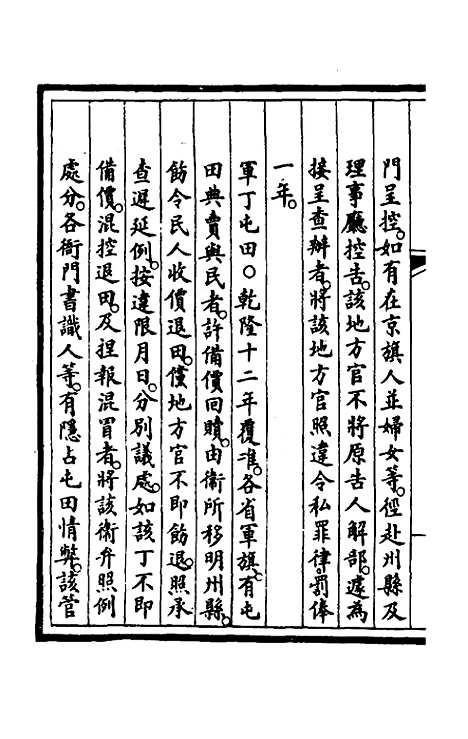 門呈控。如有在京旗人並婦女等。徑赴州縣及
理事廳控告。該地方官不將原告人解部。遽為
接呈查辦者。將該地方官照違令私罪律。罰俸
一年。
軍丁屯田○乾隆十二年覆准。各省軍旗。有屯
田典賣與民者。許備價回贖。由衛所移明州縣。
飭令民人收價退田。儻地方官不即飭退。照承
查遲延例。按違限月日。分別議處。如該丁不即
備價。混控退田。及捏報混冒者。將該衛弁照例
處分。各衙門書識人等。有隱占屯田情弊。該管